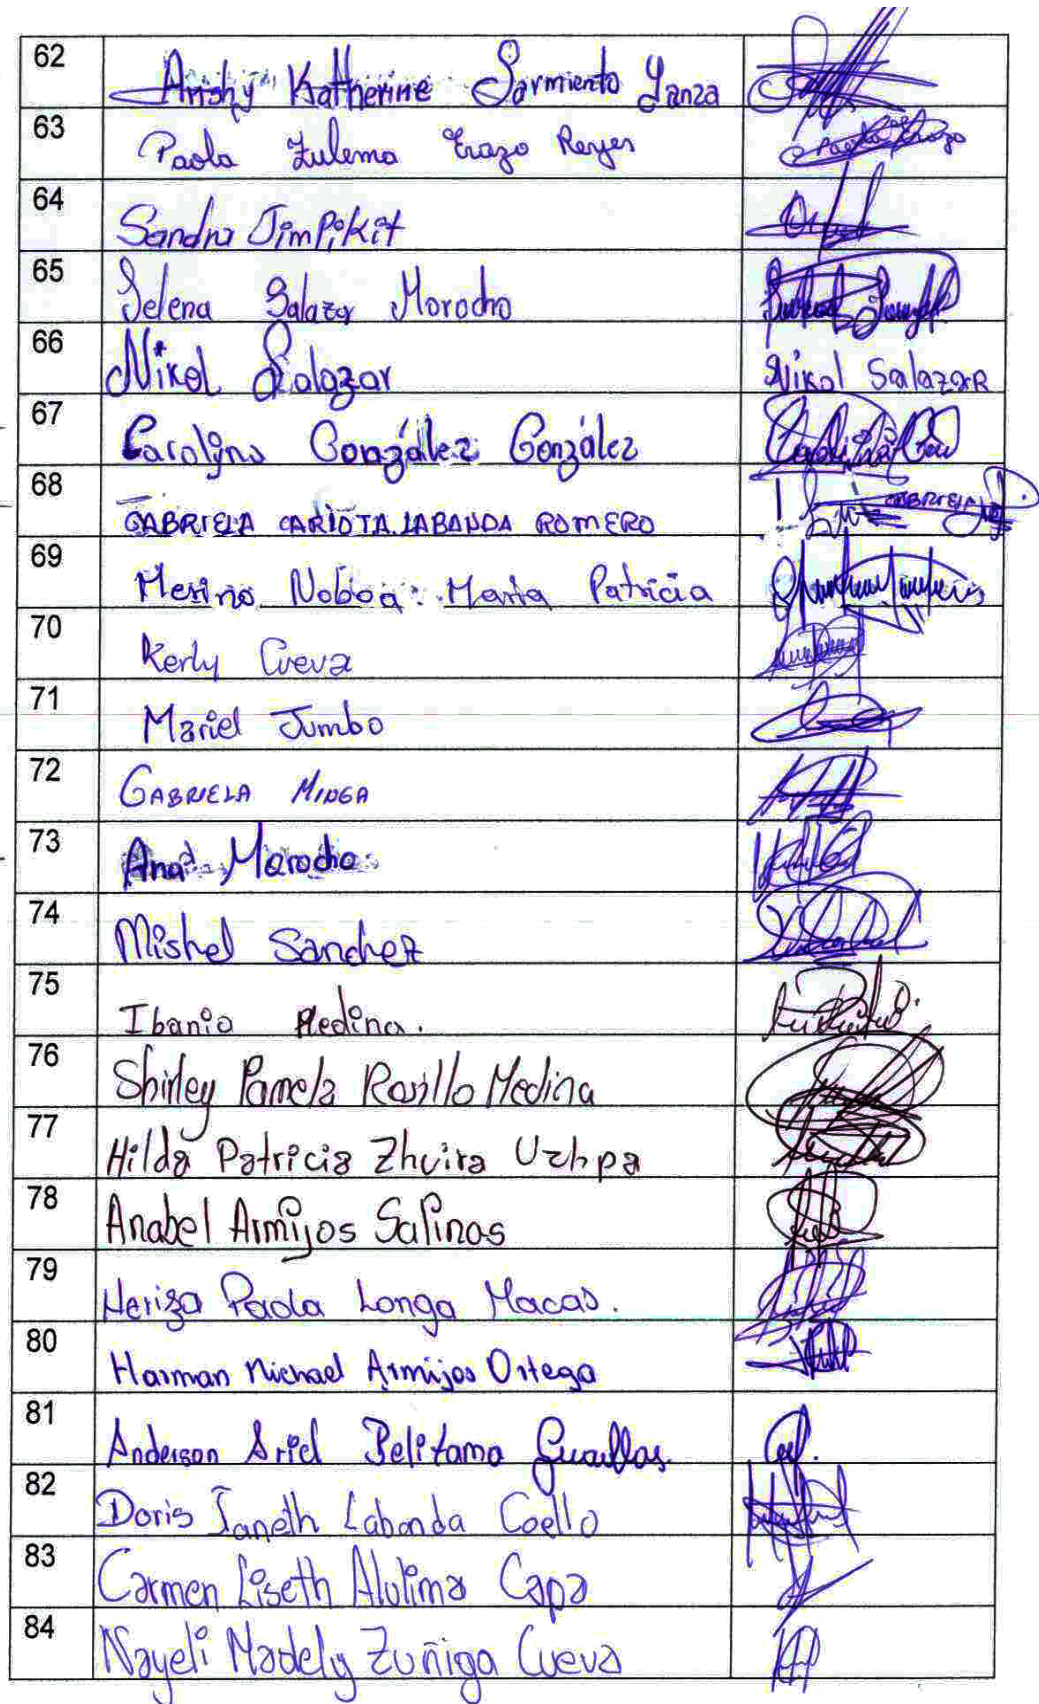 62 Anshy Katherine Sarmiento Yanza
63 Paola Zulema Erazo Reyes
64 Sandra Jimpikit
65 Selena Salazar Morocho
66 Nikol Salazar Nikol Salazar
67 Carolina González González
68 GABRIELA CARLOTA LABANDA ROMERO GABRIELA
69 Merino Noboa Maria Patricia
70 Kerly Cueva
71 Mariel Jumbo
72 GABRIELA MINGA
73 Ana Morocho
74 Mishel Sanchez
75 Ibania Medina.
76 Shirley Pamela Rosillo Medina
77 Hilda Patricia Zhuira Uzhpa
78 Anabel Armijos Salinas
79 Neriza Paola Longa Macas.
80 Harman Michael Armijos Ortega
81 Anderson Ariel Pelitama Guaillas.
82 Doris Janeth Labanda Coello
83 Carmen Liseth Alulima Capa
84 Nayeli Madely Zuñiga Cueva